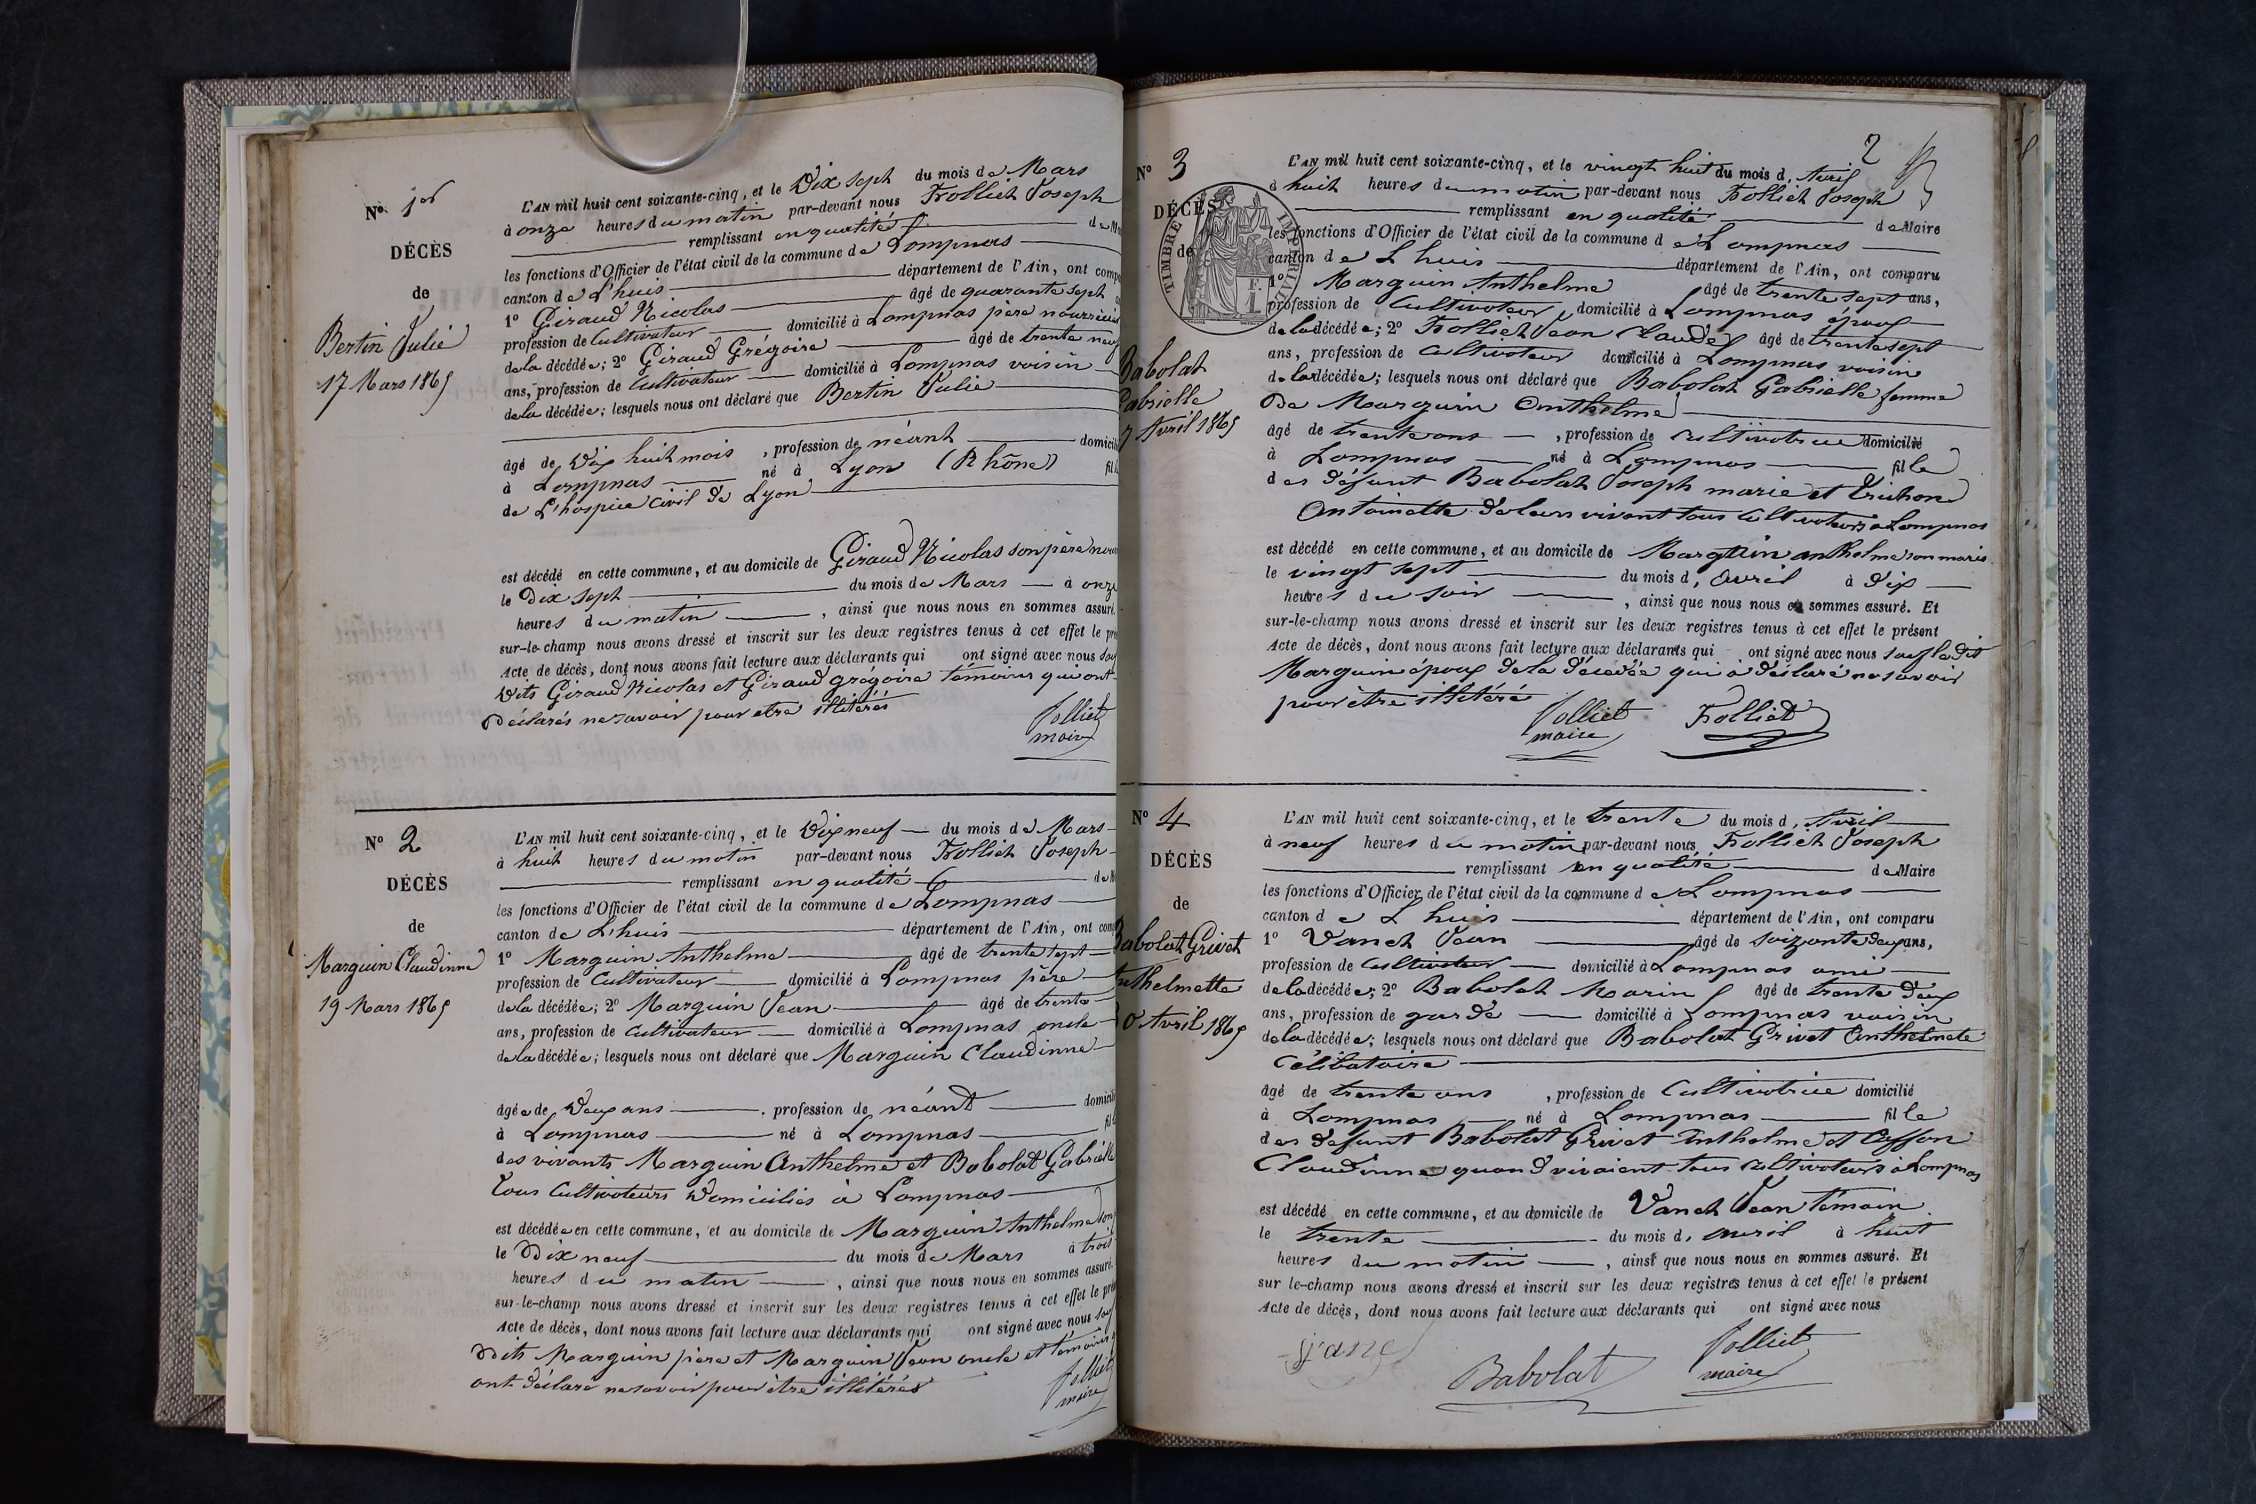 No. 1er
DÉCÈS
de
Bertin Julie
17 Mars 1865
L'AN mil huit cent soixante-cinq, et le Dix sept du mois de Mars
à onze heures du matin par-devant nous Trolliet Joseph
remplissant en qualité de
les fonctions d'Officier de l'état civil de la commune de Lompnas
canton de L'huis département de l'Ain, ont comp
1º Giraud Nicolas âgé de quarante sept
profession de Cultivateur domicilié à Lompnas père nourricier
de la décédée; 2º Giraud Grégoire âgé de trente neuf
ans, profession de Cultivateur domicilié à Lompnas voisin
de la décédée; lesquels nous ont déclaré que Bertin Julie
âgé de Dix huit mois, profession de néant domicilié
à Lompnas né à Lyon (Rhône) fil
de L'hospice civil de Lyon
est décédé en cette commune, et au domicile de Giraud Nicolas son père nour
le Dix sept du mois de Mars à onze
heures du matin, ainsi que nous nous en sommes assuré.
sur-le-champ nous avons dressé et inscrit sur les deux registres tenus à cet effet le pré
Acte de décès, dont nous avons fait lecture aux déclarants qui ont signé avec nous sauf
Dits Giraud Nicolas et Giraud grégoire témoins qui ont
Déclarés ne savoir pour etre illitérés
Trolliet
maire
No 2
DÉCÈS
de
Marguin Claudinne
19 Mars 1865
L'AN mil huit cent soixante-cinq, et le Dix neuf du mois de Mars
à huit heures du matin par-devant nous Trolliet Joseph
remplissant en qualité de
les fonctions d'Officier de l'état civil de la commune de Lompnas
canton de L'huis département de l'Ain, ont comp
1º Marguin Anthelme âgé de trente sept
profession de Cultivateur domicilié à Lompnas père
de la décédée; 2º Marguin Jean âgé de trente
ans, profession de Cultivateur domicilié à Lompnas oncle
de la décédée; lesquels nous ont déclaré que Marguin Claudinne
âgée de Deux ans, profession de néant domicilié
à Lompnas né à Lompnas fil
des vivants Marguin Anthelme et Babolat Gabrielle
tous Cultivateurs Domiciliés à Lompnas
est décédée en cette commune, et au domicile de Marguin Anthelme son
le Dix neuf du mois de Mars à trois
heures du matin, ainsi que nous nous en sommes assuré.
sur-le-champ nous avons dressé et inscrit sur les deux registres tenus à cet effet le pré
Acte de décès, dont nous avons fait lecture aux déclarants qui ont signé avec nous sauf
Dits Marguin père et Marguin Jean oncle et témoins
ont déclaré ne savoir pour être illitérés
Trolliet
maire
2
No 3
DÉCÈS
de
TIMBRE IMPÉRIAL
Babolat
Gabrielle
7 Avril 1865
L'AN mil huit cent soixante-cinq, et le vingt huit du mois d'Avril
à huit heures du matin par-devant nous Trolliet Joseph
remplissant en qualité de Maire
les fonctions d'Officier de l'état civil de la commune de Lompnas
canton de L huis département de l'Ain, ont comparu
1º Marguin Anthelme âgé de trente sept ans,
profession de Cultivateur domicilié à Lompnas époux
de la décédée; 2º Trolliet Jean Claude âgé de trente sept
ans, profession de Cultivateur domicilié à Lompnas voisin
de la décédée; lesquels nous ont déclaré que Babolat Gabrielle femme
De Marguin Anthelme
âgé de trente ans, profession de cultivatrice domicilié
à Lompnas né à Lompnas fille
des défunt Babolat Joseph marie et Trichon
Antoinette de leur vivant tous cultivateurs à Lompnas
est décédé en cette commune, et au domicile de Marguin anthelme son maris
le vingt sept du mois d'Avril à dix
heures du soir, ainsi que nous nous en sommes assuré. Et
sur-le-champ nous avons dressé et inscrit sur les deux registres tenus à cet effet le présent
Acte de décès, dont nous avons fait lecture aux déclarants qui ont signé avec nous sauf le dit
Marguin époux de la décédée qui a déclaré ne savoir
pour être illitéré
Trolliet
maire
Trolliet
No 4
DÉCÈS
de
Babolat Grivet
Anthelmette
30 Avril 1865
L'AN mil huit cent soixante-cinq, et le trente du mois d'Avril
à neuf heures du matin par-devant nous Trolliet Joseph
remplissant en qualité de Maire
les fonctions d'Officier de l'état civil de la commune de Lompnas
canton de L huis département de l'Ain, ont comparu
1º Vanet Jean âgé de soixante deux ans,
profession de Cultivateur domicilié à Lompnas ami
de la décédée; 2º Babolat Marin âgé de trente deux
ans, profession de garde domicilié à Lompnas voisin
de la décédée; lesquels nous ont déclaré que Babolat Grivet Anthelmete
Célibataire
âgé de trente ans, profession de Cultivatrice domicilié
à Lompnas né à Lompnas fille
des défunt Babolat Grivet Anthelme et
Claudinne quand vivaient tous cultivateurs à Lompnas
est décédé en cette commune, et au domicile de Vanet Jean témoin
le trente du mois d'avril à huit
heures du matin, ainsi que nous nous en sommes assuré. Et
sur le-champ nous avons dressé et inscrit sur les deux registres tenus à cet effet le présent
Acte de décès, dont nous avons fait lecture aux déclarants qui ont signé avec nous
Babolat
Trolliet
maire